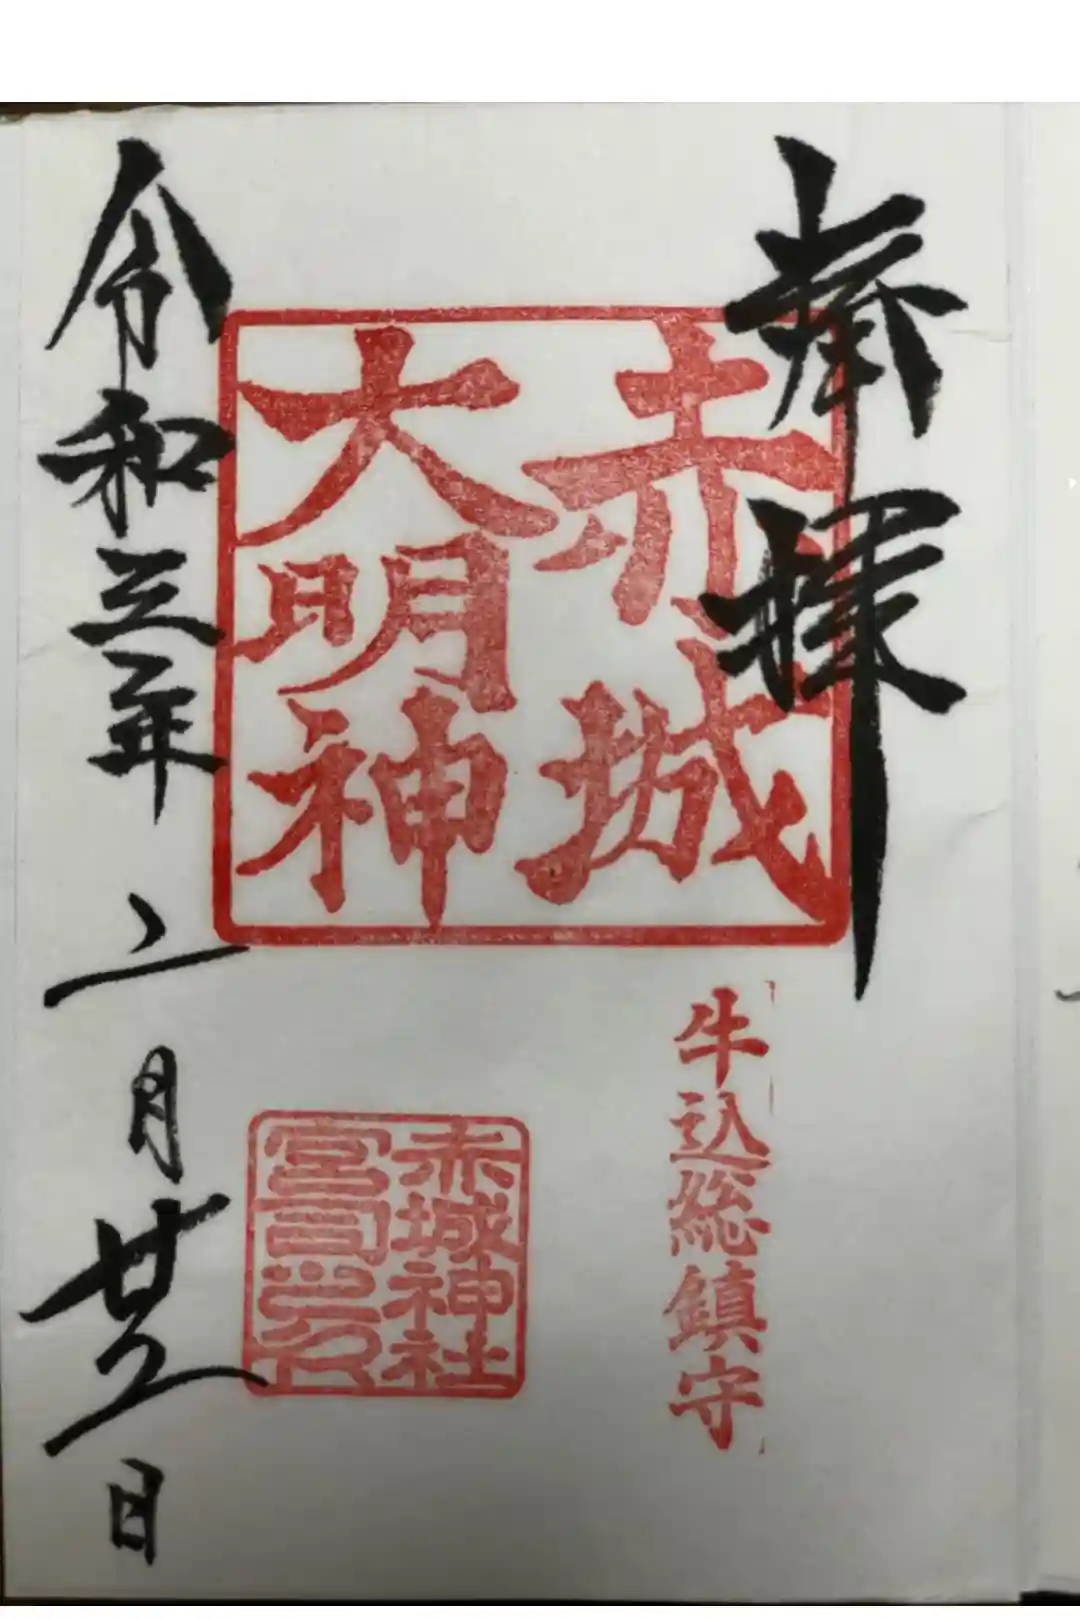 奉拝
赤城
大明神
牛込総鎮守
赤城神社
宮司之印
令和三年二月廿日